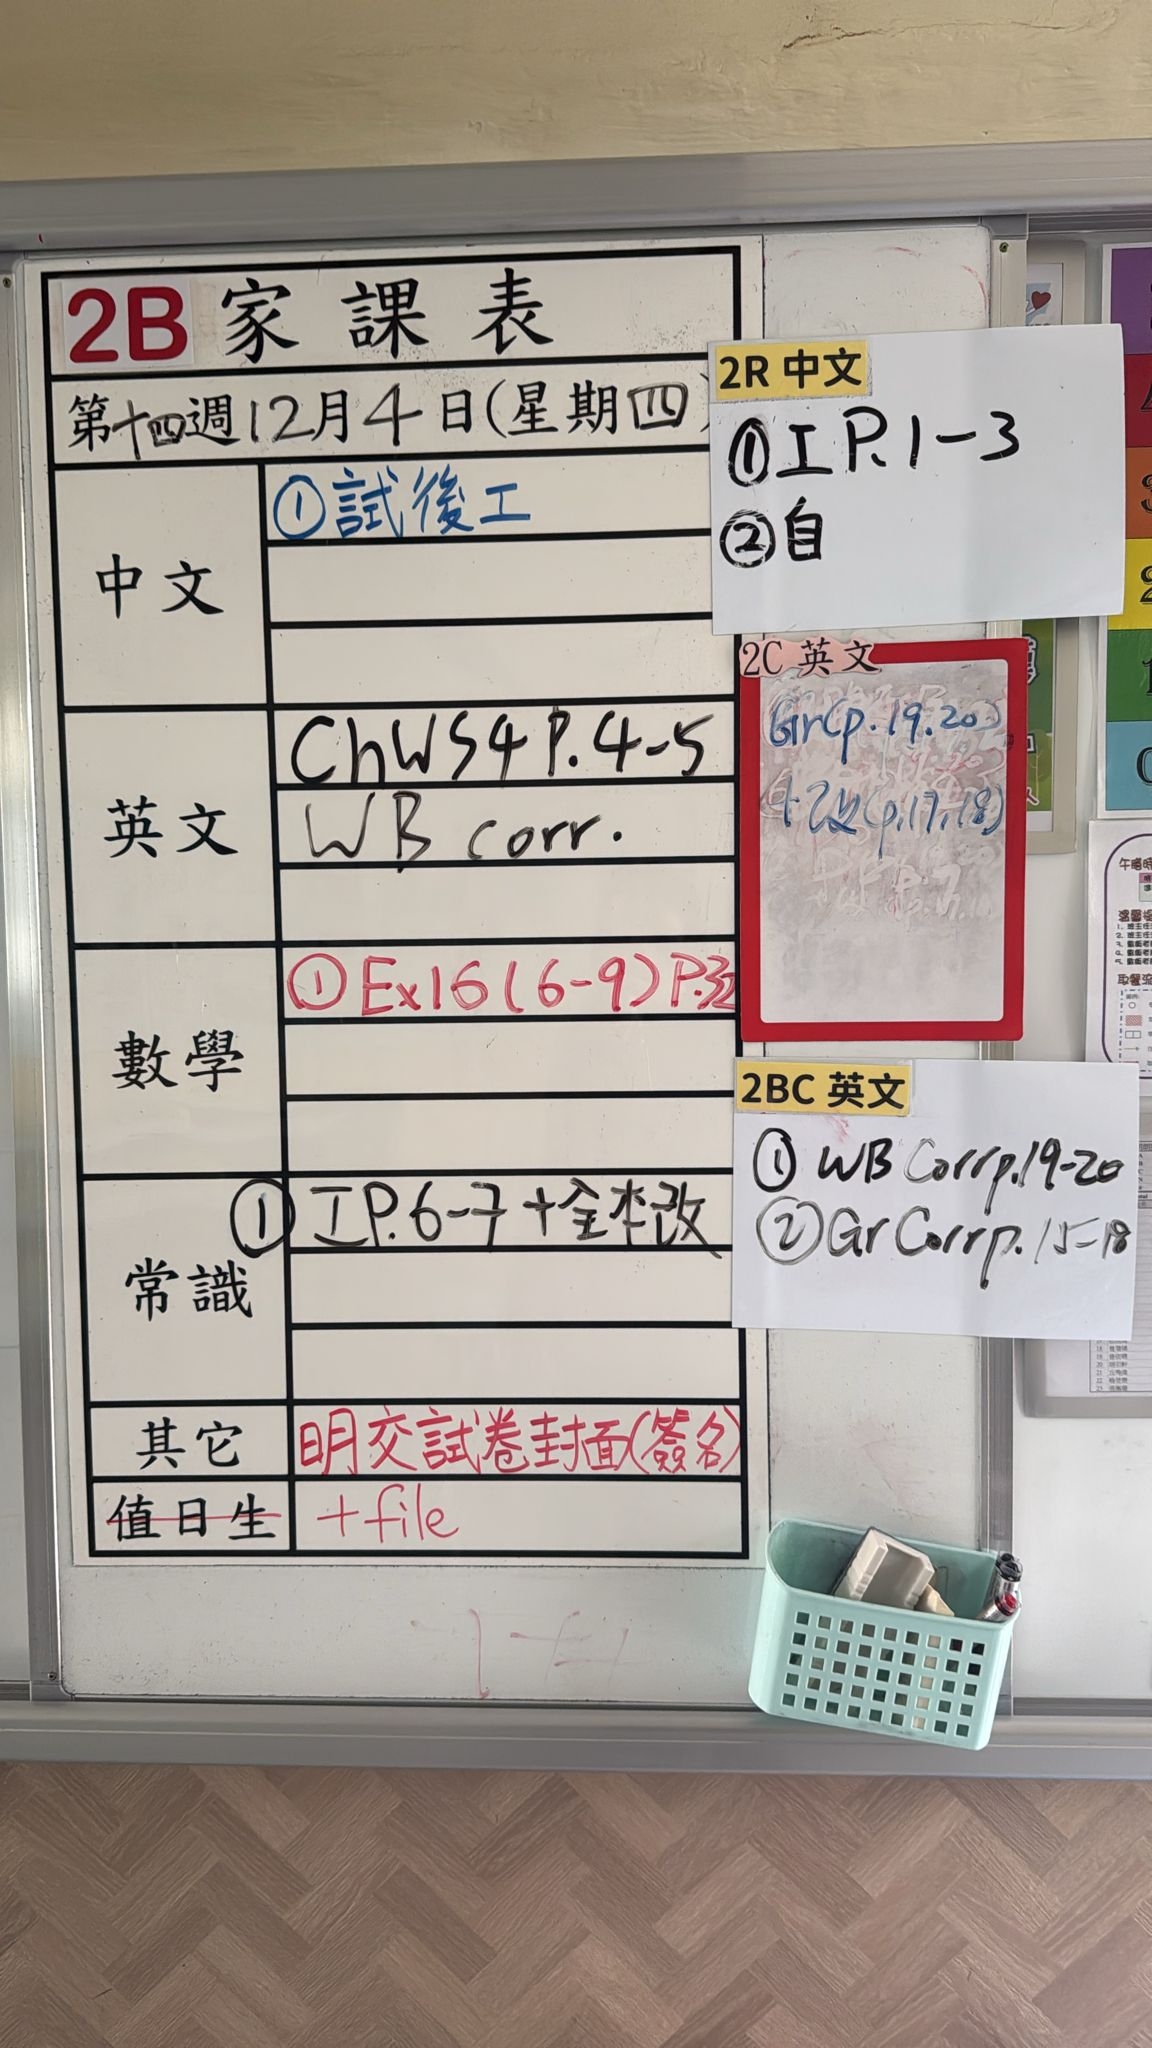 2B 家課表
第十四週12月4日(星期四)
中文
①試後工
英文
ChWS4 P.4-5
WB corr.
數學
①Ex16(6-9)P.32
常識
①工P.6-7+全本改
其它
明交試卷封面(簽名)
值日生
+file
2R 中文
①工 P.1-3
②自
2C 英文
Gr(p.19.20)
+改(p.17,18)
2BC 英文
①WB Corr p.19-20
②Gr Corr p.15-18